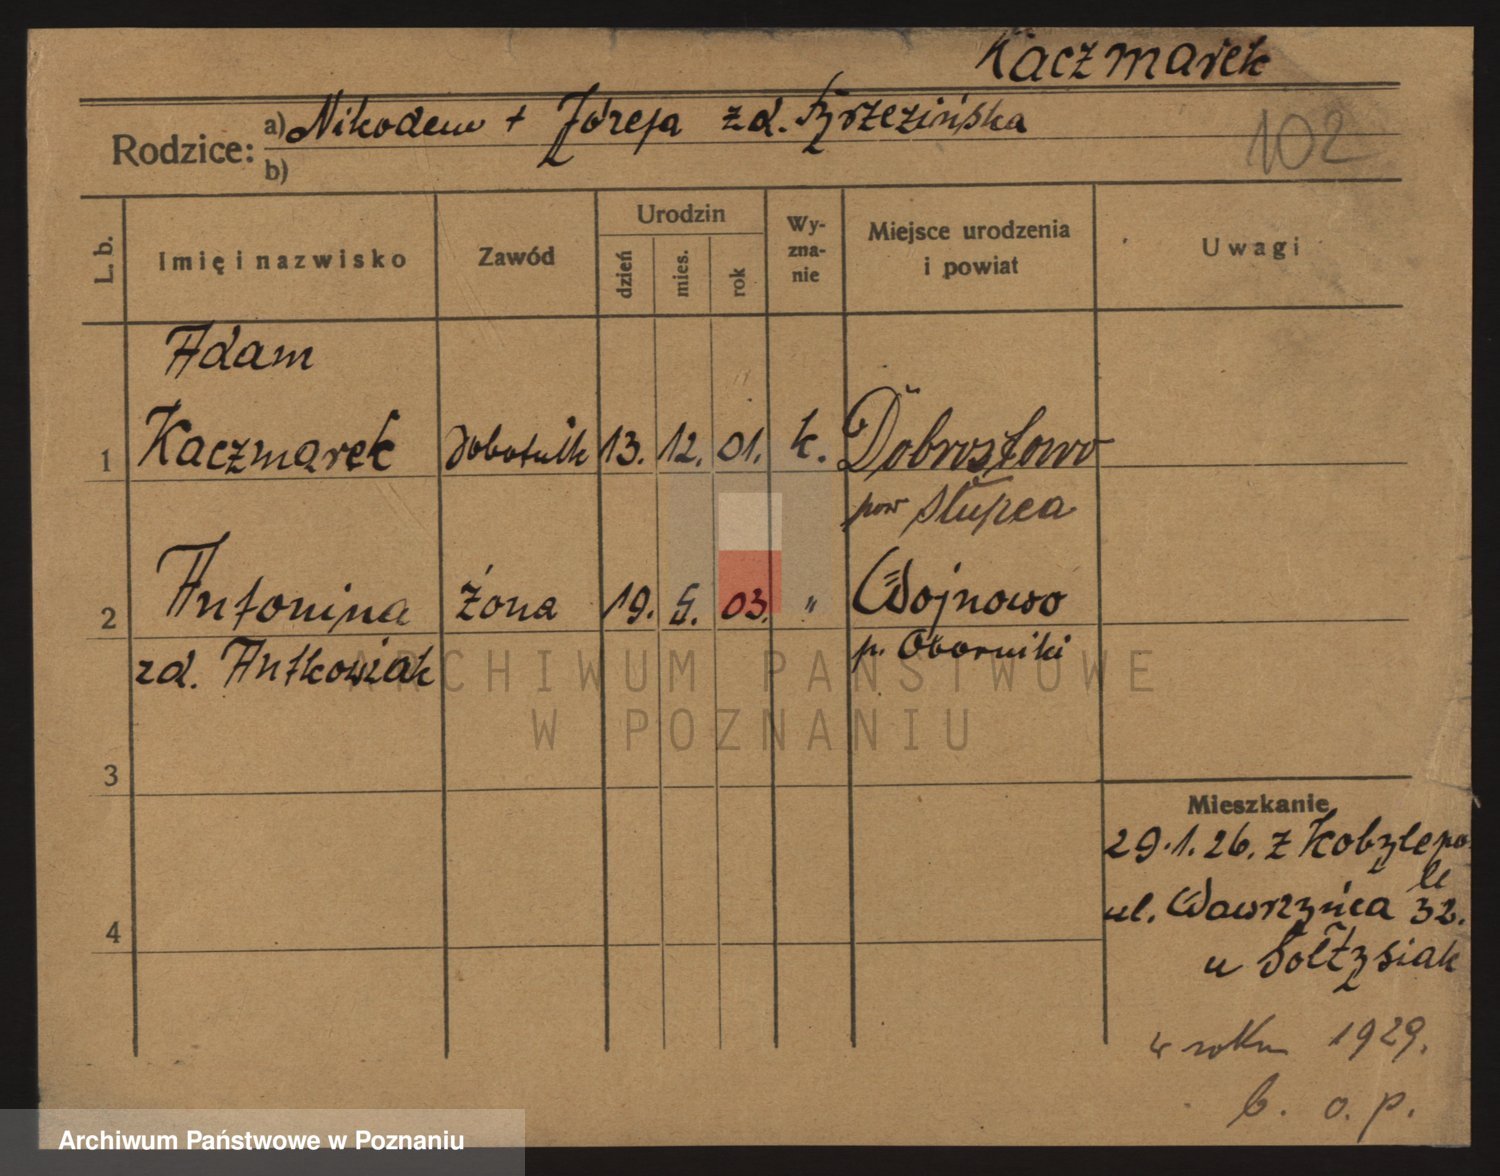 Kaczmarek
102
Rodzice: a) Nikodem + Józefa zd. Brzezińska
b)
L. b.
Imię i nazwisko
Zawód
Urodzin
dzień
mies.
rok
Wy-
zna-
nie
Miejsce urodzenia
i powiat
Uwagi
Adam
1 Kaczmarek robotnik 13. 12. 01. k. Dobrosłowo
pow Słupca
2 Antonina żona 19. 5. 03. " Wojnowo
zd. Antkowiak p. Oborniki
ARCHIWUM PAŃSTWOWE
W POZNANIU
3
Mieszkanie
29.1.26. z Kobylepo
le
ul. Wawrzyńca 32.
4
u Sołtysiak
w roku 1929.
b. o. p.
Archiwum Państwowe w Poznaniu